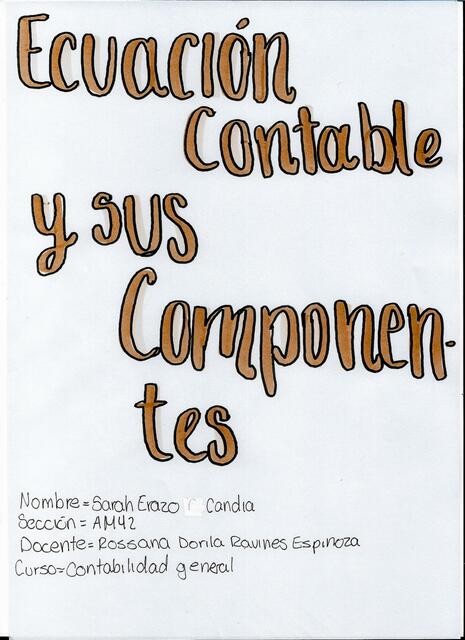 Ecuación
Contable
y sus
Componen-
tes
Nombre=Sarah Erazo Candia
Sección= AM42
Docente=Rossana Dorila Ravines Espinoza
Curso=Contabilidad general